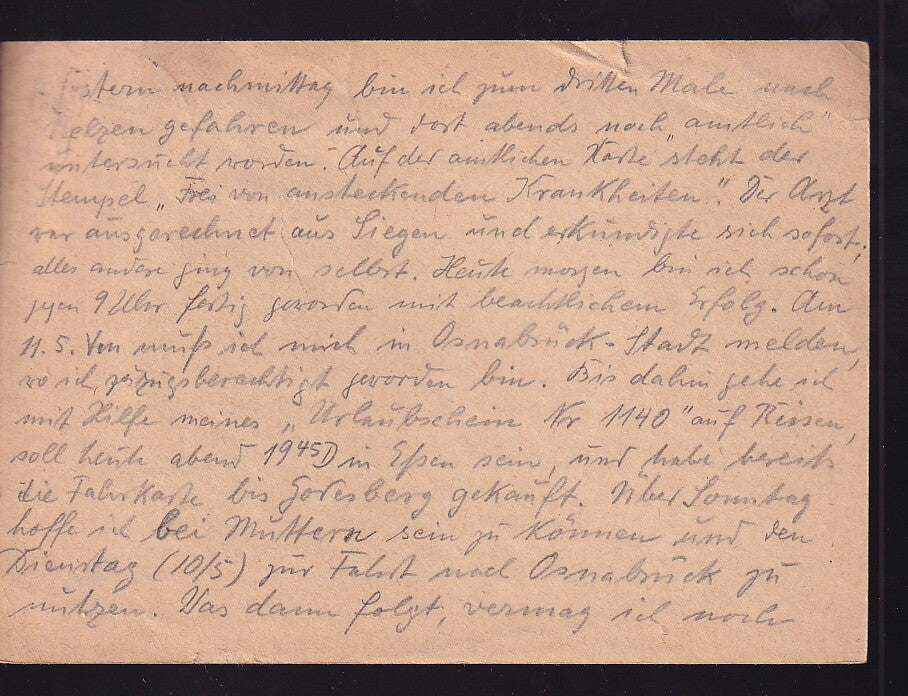 Gestern nachmittag bin ich zum dritten Male nach
Uelzen gefahren und dort abends noch "amtlich"
untersucht worden. Auf der amtlichen Karte steht der
Stempel „Frei von ansteckenden Krankheiten". Der Arzt
war ausgerechnet aus Siegen und erkundigte sich sofort,
alles andere ging von selbst. Heute morgen bin ich schon
gegen 9 Uhr fertig geworden mit beachtlichem Erfolg. Am
11.5. muß ich mich in Osnabrück-Stadt melden,
wo ich zuzugsberechtigt geworden bin. Bis dahin gehe ich
mit Hilfe meines „Urlaubschein Nr 1140" auf Reisen,
soll heute abend 19 45 in Essen sein, und habe bereits
die Fahrkarte bis Godesberg gekauft. Über Sonntag
hoffe ich bei Muttern sein zu können und den
Dienstag (10/5) zur Fahrt nach Osnabrück zu
nutzen. Was dann folgt, vermag ich noch